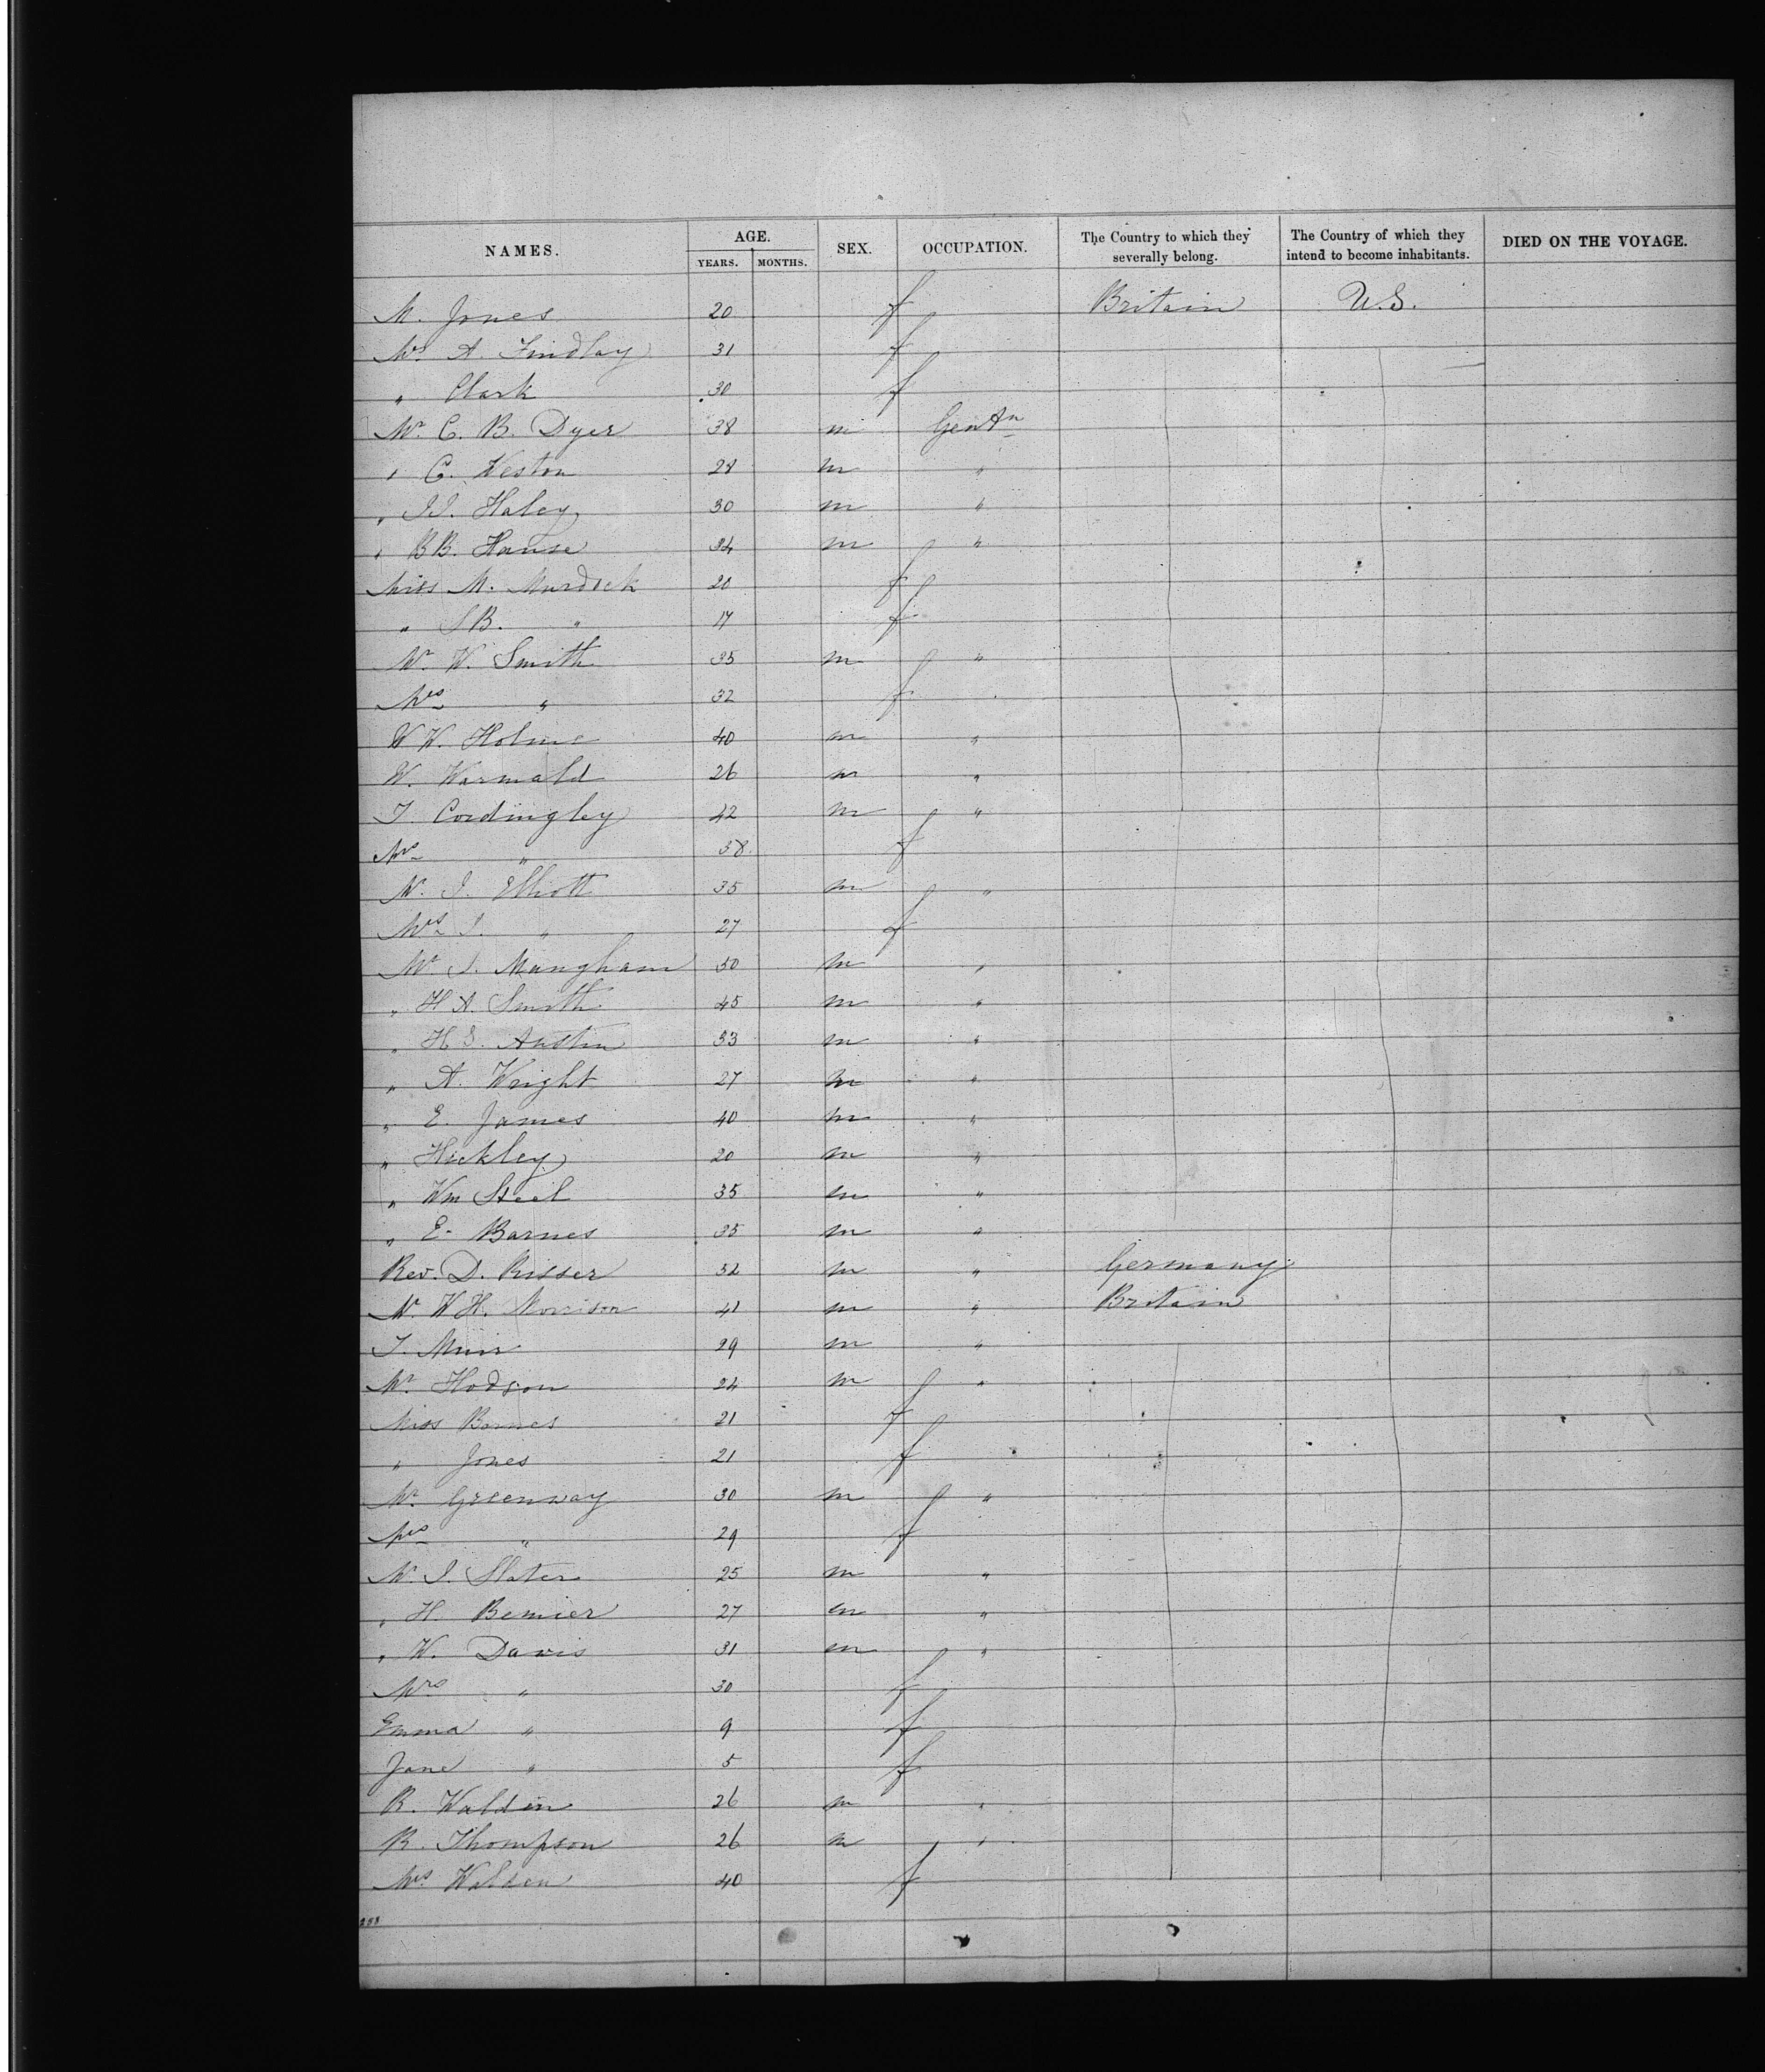 NAMES. AGE. SEX. OCCUPATION. The Country to which they severally belong. The Country of which they intend to become inhabitants. DIED ON THE VOYAGE.
YEARS. MONTHS.
M. Jones 20 f Britain U.S.
Mrs A. Findlay 31 f
" Clark 30 f
Mr C. B. Dyer 38 m Gentn
" C. Weston 28 m "
" J.J. Haley 30 m "
" BB. Hanse 34 m "
Miss M. Murdock 20 f
" S B. " 17 f
Mr W. Smith 35 m "
Mrs " 32 f
W W. Holme 40 m "
W. Warmald 26 m "
T. Cordingley 42 m "
Mrs " 38 f
Mr J. Elliott 35 m "
Mrs J. " 27 f
Mr J. Mangham 50 m "
" H A. Smith 45 m "
" H S. Austin 33 m "
" A. Wright 27 m "
" E. James 40 m "
" Hickley 20 m "
" Wm Steel 35 m "
" E. Barnes 35 m "
Rev. D. Risser 52 m " Germany
Mr W H. Morrison 41 m " Britain
T. Muir 29 m "
Mr Hodgson 24 m "
Miss Barnes 21 f
" Jones 21 f
Mr Greenway 30 m "
Mrs " 29 f
Mr J. Slater 25 m "
" H. Bemier 27 m "
" W. Davis 31 m "
Mrs " 30 f
Emma " 9 f
Jane " 5 f
R. Waldin 26 m "
R. Thompson 26 m "
Mrs Walden 40 f